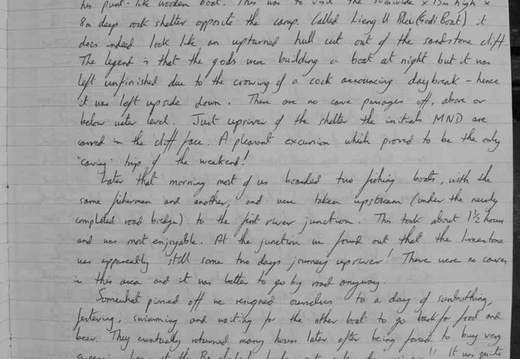 his punt-like wooden boat. This was to visit the wide x 15m high x
8m deep rock shelter opposite the camp. Called Lieng U Blei (Gods Boat) it
does indeed look like an upturned hull cut out of the sandstone cliff.
The legend is that the gods were building a boat at night but it was
left unfinished due to the crowing of a cock announcing daybreak - hence
it was left upside down. There are no cave passages off, above or
below water level. Just upriver of the shelter the initials MND are
carved in the cliff face. A pleasant excursion which proved to be the only
'caving' trip of the weekend!
Later that morning most of us boarded two fishing boats, with the
same fisherman and another, and were taken upstream (under the newly
completed road bridge) to the first river junction. This took about 1½ hours
and was most enjoyable. At the junction we found out that the limestone
was apparently still some two days journey upriver! There were no caves
in this area and it was better to go by road anyway.
Somewhat pissed off we resigned ourselves to a day of sunbathing,
festering, swimming and waiting for the other boat to go back for food and
beer. They eventually returned many hours later after being forced to buy very
It was quite